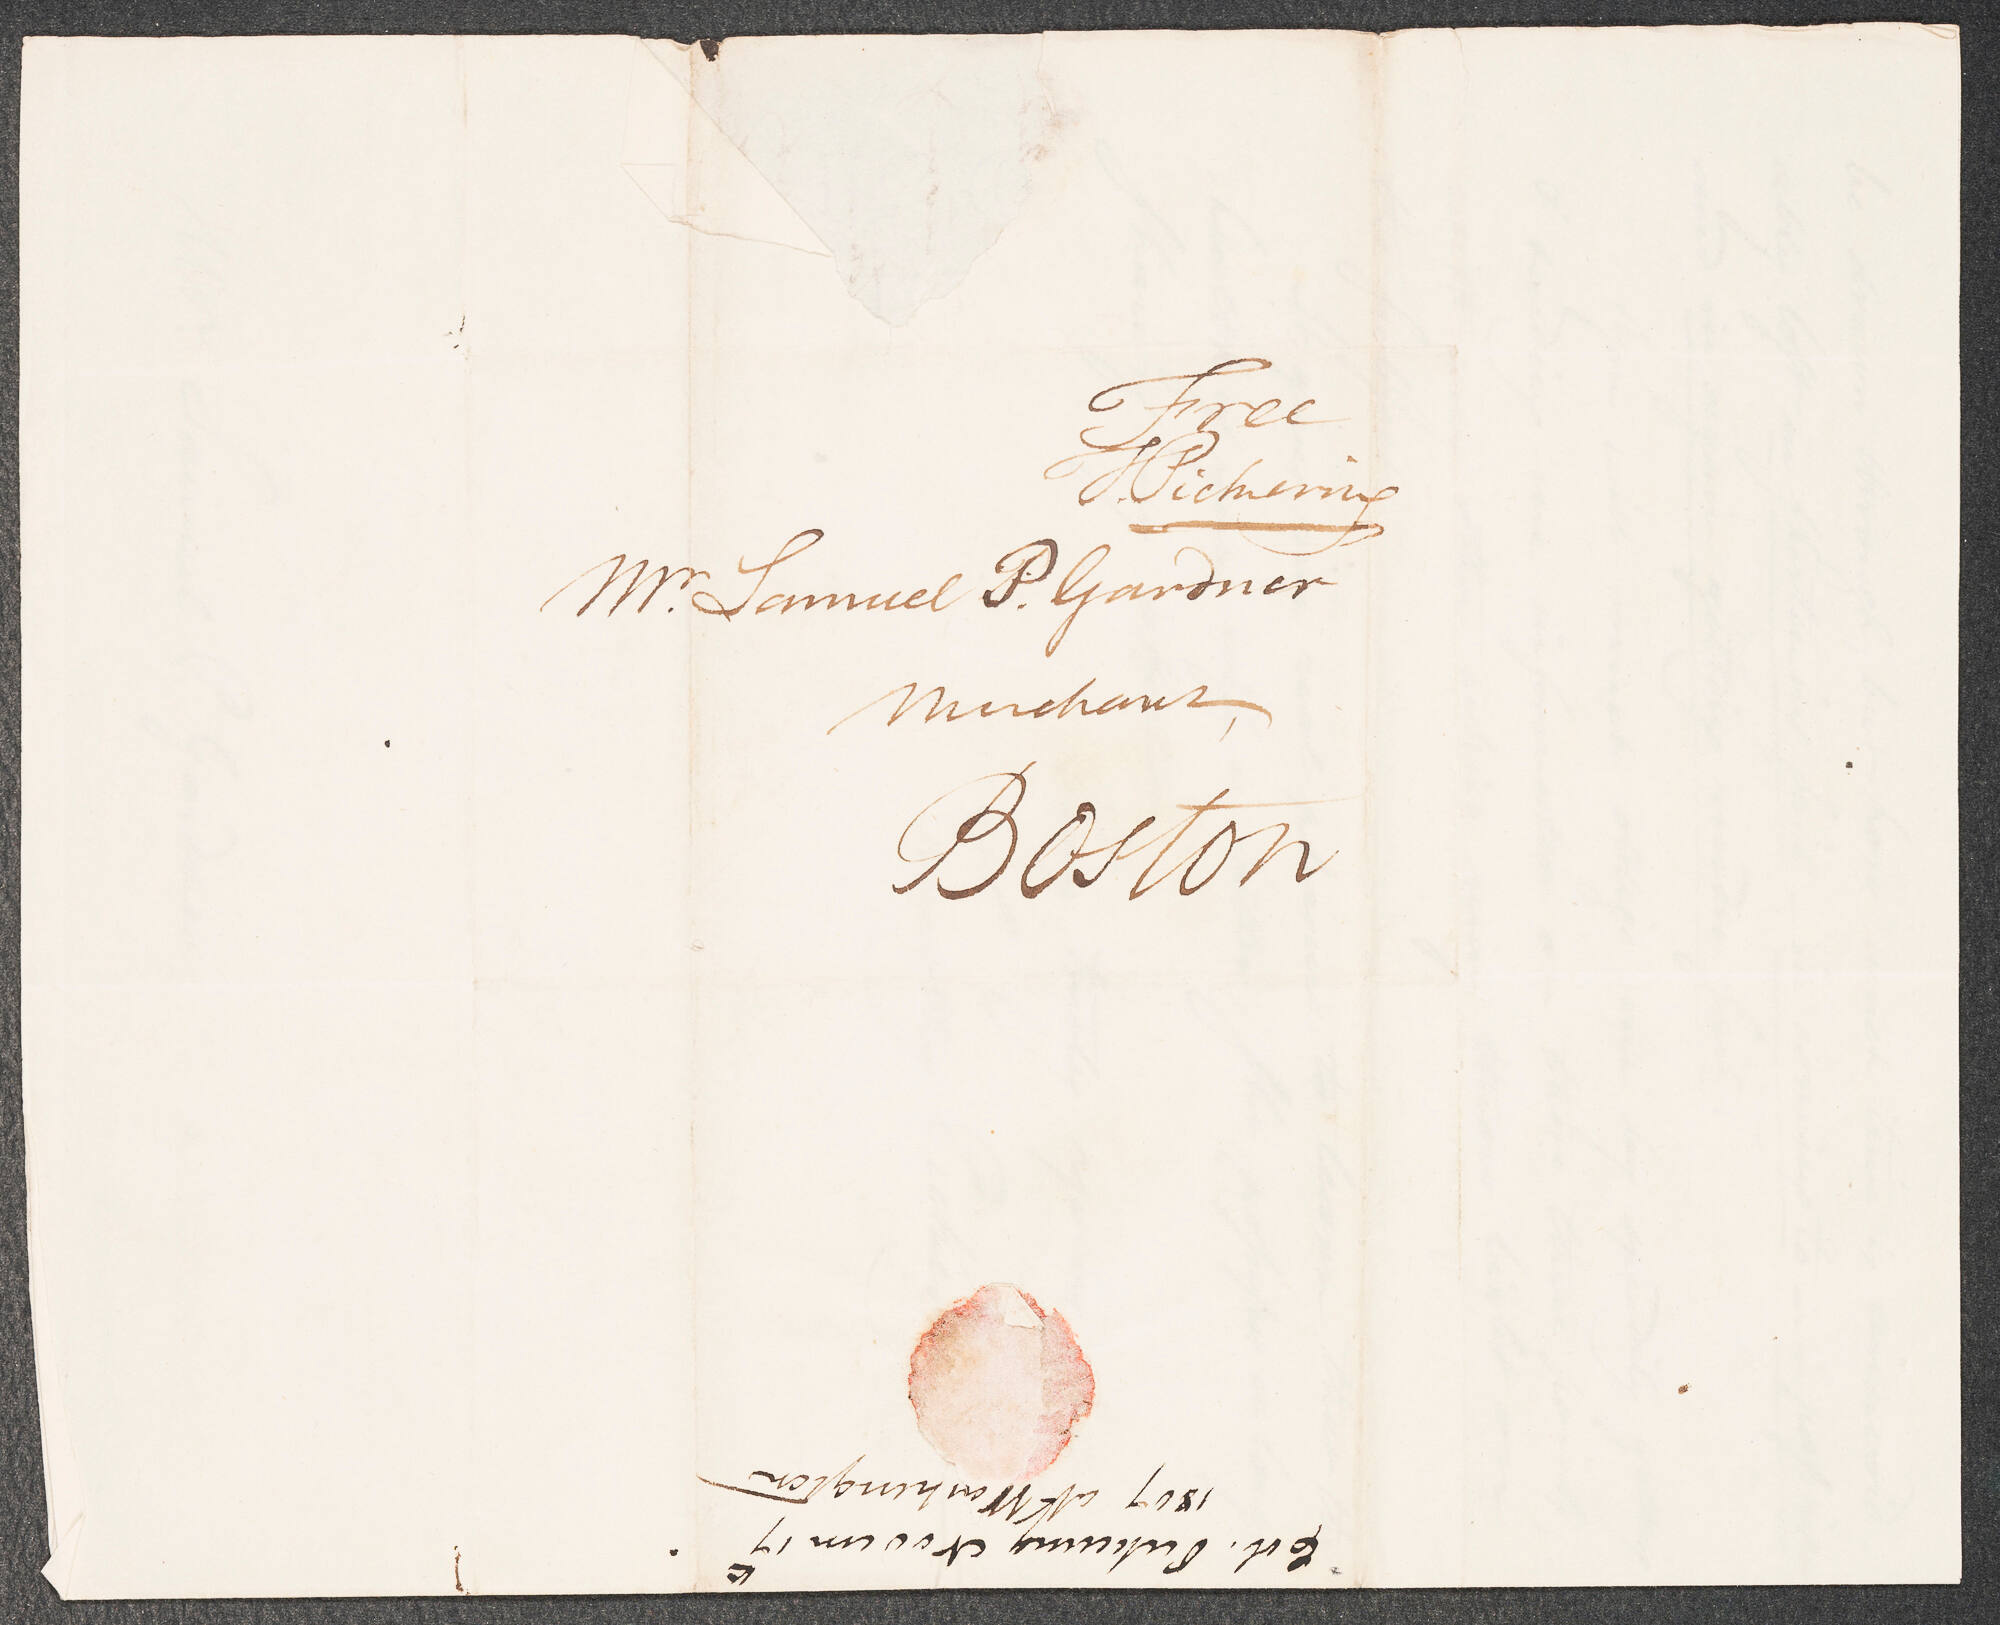 Free
T. Pickering
Mr. Samuel P. Gardner
Merchant,
Boston
Col. Pickering Novem 17
1807 at Washington